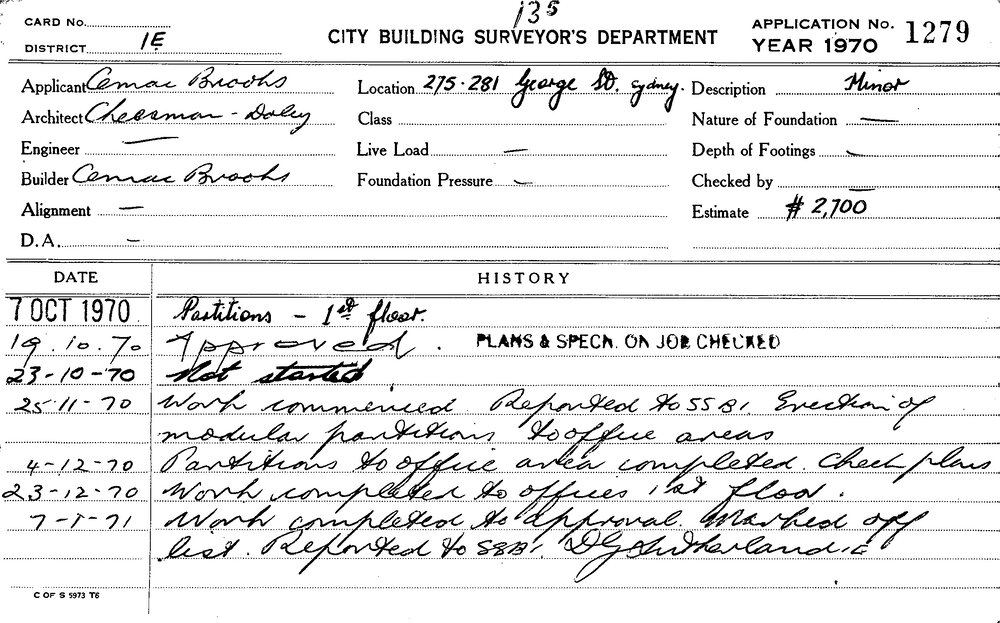 135
CARD No.
DISTRICT 1E
CITY BUILDING SURVEYOR'S DEPARTMENT
APPLICATION No. 1279
YEAR 1970
Applicant Cemac Brooks
Location 275-281 George St. Sydney.
Description Minor
Architect Cheesman - Doley
Class
Nature of Foundation —
Engineer —
Live Load —
Depth of Footings —
Builder Cemac Brooks
Foundation Pressure —
Checked by —
Alignment —
Estimate $ 2,700
D.A. —
DATE HISTORY
7 OCT 1970 Partitions - 1st floor.
19.10.70 Approved. PLANS & SPECN. ON JOB CHECKED
23-10-70 Not started
25-11-70 Work commenced Reported to SSBI. Erection of
modular partitions to office areas
4-12-70 Partitions to office area completed. Check plans
23-12-70 Work completed to offices 1st floor.
7-1-71 Work completed to approval. Marked off
list. Reported to SSBI. DG Sutherland. 1E
C OF S 5973 T6